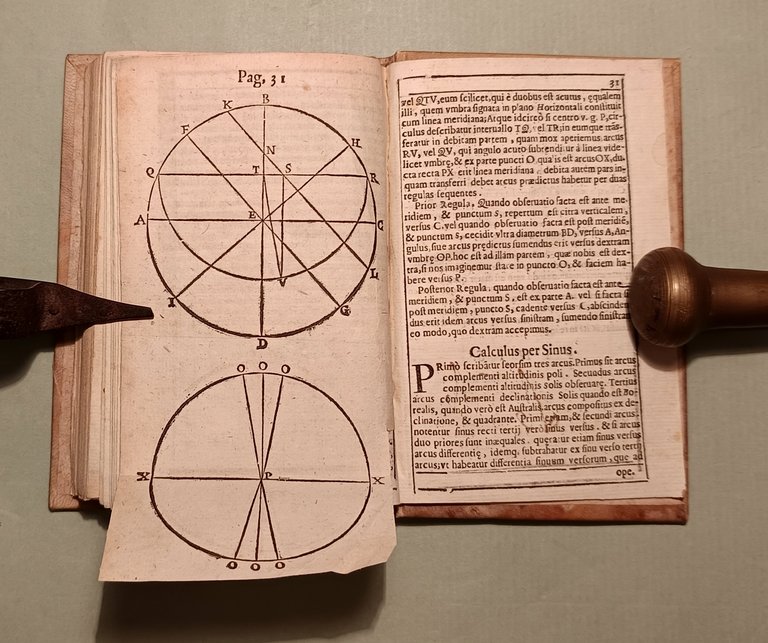 Pag, 31
B
K
F
H
N
Q
T
S
R
A
E
C
L
V
I
G
D
O O O
X
P
X
O O O
31
vel QTV, eum scilicet, qui è duobus est acutus, ęqualem
illi, quem vmbra signata in plano Horizontali constituit
cum linea meridiana; Atque idcircò si centro v. g. P, cir-
culus describatur interuallo TQ, vel TR; in eumque trãs-
feratur in debitam partem, quam mox aperiemus, arcus
RV, vel QV, qui angulo acuto subtenditur à linea vide-
licet vmbrę, & ex parte puncti O qualis est arcus OX, du-
cta recta PX erit linea meridiana, debita autem pars in-
quam transferri debet arcus prædictus habetur per duas
regulas sequentes.
Prior Regula. Quando obseruatio facta est ante me-
ridiem, & punctum S, repertum est citra verticalem,
versus C, vel quando obseruatio facta est post meridiē,
& punctum S, cecidit vltra diametrum BD, versus A, An-
gulus, siue arcus prędictus sumendus erit versus dextram
vmbrę OP, hoc est ad illam partem, quæ nobis est dex-
tra, si nos imaginemur stare in puncto O, & faciem ha-
bere versus P.
Posterior Regula. quando obseruatio facta est ante
meridiem, & punctum S. est ex parte A. vel si facta sit
post meridiem, puncto S, cadente versus C, abscinden
dus erit idem arcus versus sinistram, sumendo sinistram
eo modo, quo dextram accepimus.
Calculus per Sinus.
PRimò scribãtur seorsim tres arcus. Primus sit arcus
complementi altitudinis poli. Secundus arcus
complementi altitudinis solis obseruatę. Tertius
arcus complementi declinationis Solis quando est Bo-
realis, quando verò est Australis, arcus compositus ex de-
clinatione, & quadrante. Primi etiam, & secundi arcus
notentur sinus recti tertij verò sinus versus. & si arcus
duo priores sunt inæquales. quęratur etiam sinus versus
arcus differentię, idemq. subtrahatur ex sinu verso tertij
arcus; vt habeatur differentia sinuum versorum, quę ad
ope.